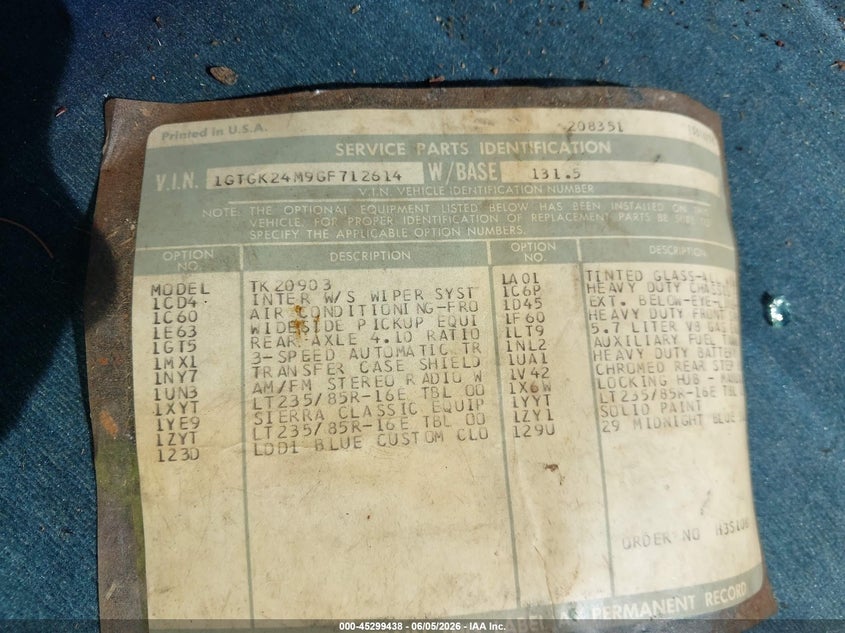 Printed in U.S.A. 208351
SERVICE PARTS IDENTIFICATION
V.I.N. 1GTGK24M9GF712614 W/BASE 131.5
V.I.N. VEHICLE IDENTIFICATION NUMBER
NOTE: THE OPTIONAL EQUIPMENT LISTED BELOW HAS BEEN INSTALLED ON THIS
VEHICLE. FOR PROPER IDENTIFICATION OF REPLACEMENT PARTS BE SURE TO
SPECIFY THE APPLICABLE OPTION NUMBERS.
OPTION NO. DESCRIPTION OPTION NO. DESCRIPTION
MODEL TK20903 1A01 TINTED GLASS-AL
1CD4 INTER W/S WIPER SYST 1C6P HEAVY DUTY CHASSI
1C60 AIR CONDITIONING-FRO 1D45 EXT. BELOW-EYE-L
1E63 WIDESIDE PICKUP EQUI 1F60 HEAVY DUTY FRONT
1GT5 REAR AXLE 4.10 RATIO 1LT9 5.7 LITER V8 GAS
1MX1 3-SPEED AUTOMATIC TR 1NL2 AUXILIARY FUEL TAN
1NY7 TRANSFER CASE SHIELD 1UA1 HEAVY DUTY BATTER
1UN3 AM/FM STEREO RADIO W 1V42 CHROMED REAR STEP
1XYT LT235/85R-16E TBL OO 1X6W LOCKING HUB - MANU
1YE9 SIERRA CLASSIC EQUIP 1YYT LT235/85R-16E TBL
1ZYT LT235/85R-16E TBL OO 1ZY1 SOLID PAINT
123D LDD1 BLUE CUSTOM CLO 129U 29 MIDNIGHT BLUE
ORDER NO H3S
PERMANENT RECORD
000-45299438 - 06/05/2026 - IAA Inc.